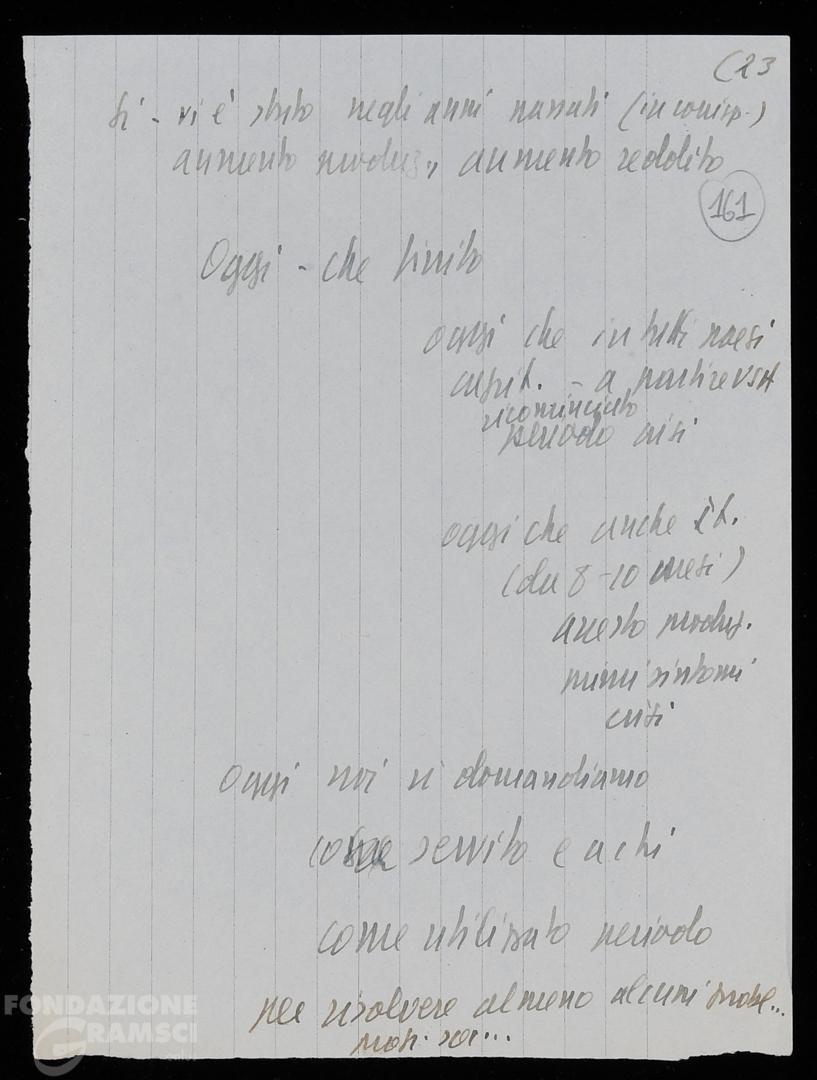 (23
Sì - vi è stato negli anni passati (in conisp.)
aumento produz., aumento reddito
161
Oggi - che finito
oggi che in tutti paesi
capit. - a partire USA
ricominciato
periodo crisi
oggi che anche It.
(da 8-10 mesi)
arresto produz.
primi sintomi
crisi
Oggi noi ci domandiamo
cosa servito e a chi
come utilizzato periodo
per risolvere almeno alcuni probl...
FONDAZIONE
GRAMSCI